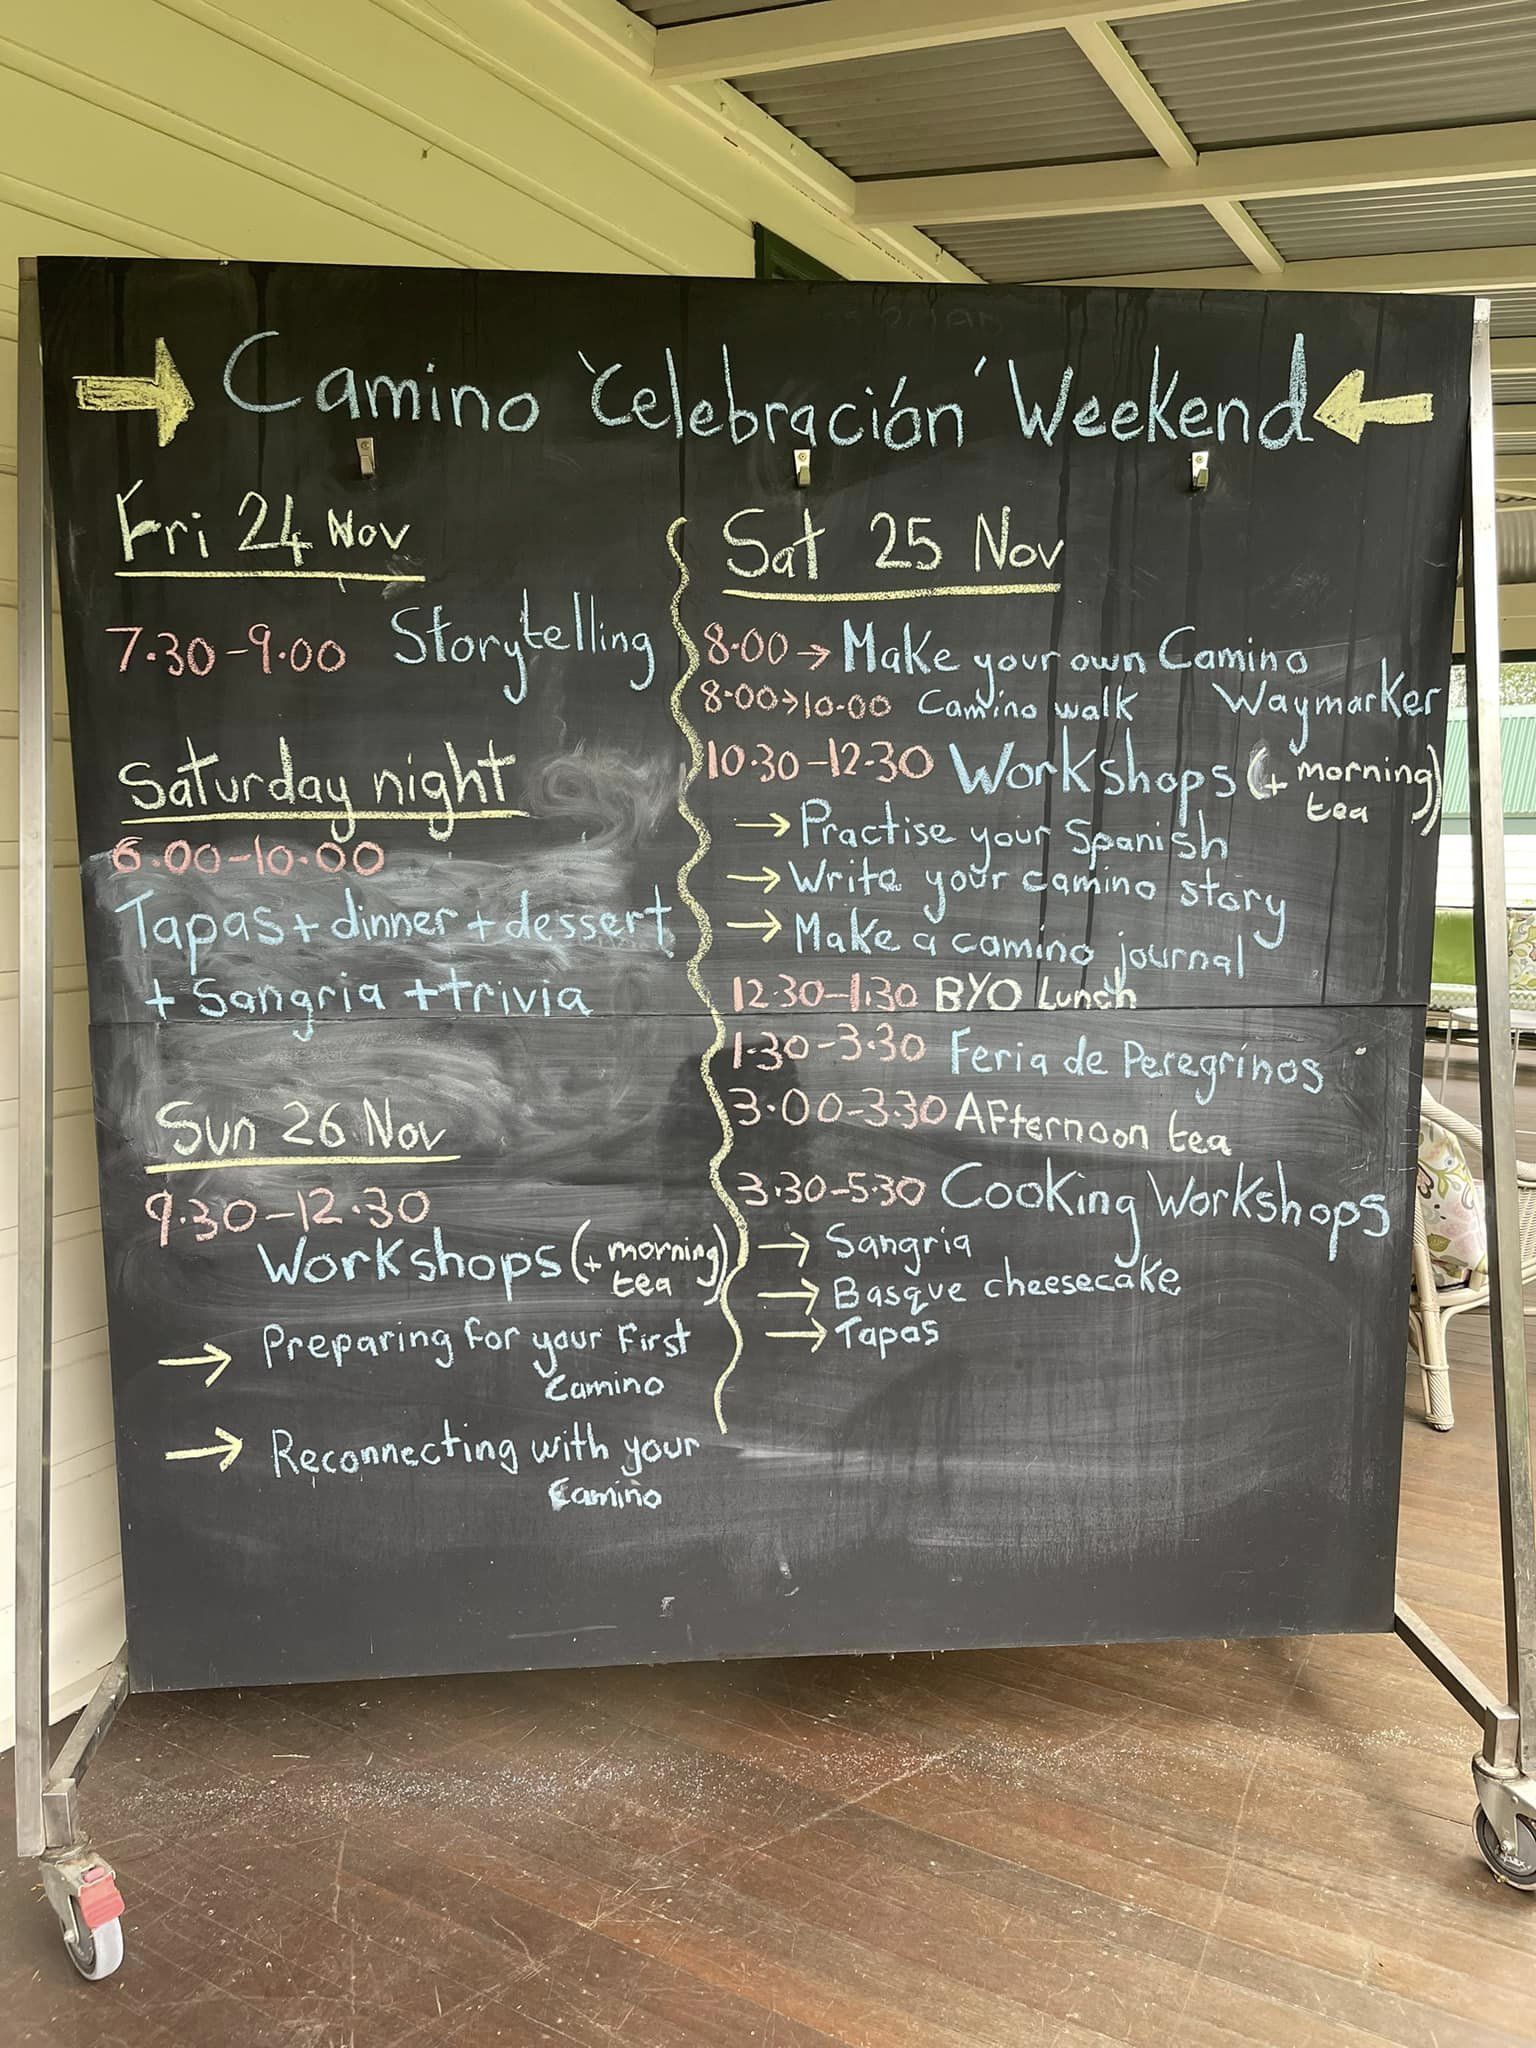 Camino 'Celebración' Weekend
Fri 24 Nov
7.30-9.00 Storytelling
Saturday night
6.00-10.00
Tapas + dinner + dessert
+ Sangria + trivia
Sun 26 Nov
9.30-12.30
Workshops (+ morning
tea)
→ Preparing for your First
Camino
→ Reconnecting with your
Camino
Sat 25 Nov
8.00 → Make your own Camino
Waymarker
8.00→10.00 Camino walk
10.30-12.30 Workshops (+ morning
tea)
→ Practise your Spanish
→ Write your camino story
→ Make a camino journal
12.30-1.30 BYO Lunch
1.30-3.30 Feria de Peregrínos
3.00-3.30 Afternoon tea
3.30-5.30 Cooking Workshops
→ Sangria
→ Basque cheesecake
→ Tapas